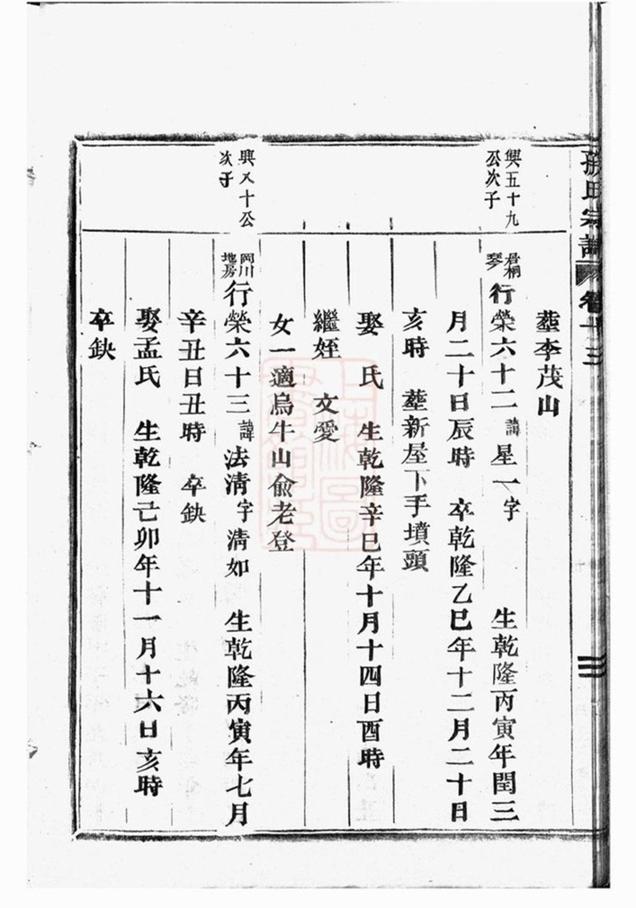 孫氏宗譜 卷十三 三
塟李茂山
興五十九
公次子
君桐
琴
行榮六十二 諱星一字 生乾隆丙寅年閏三
月二十日辰時 卒乾隆乙巳年十二月二十日
亥時 塟新屋下手墳頭
娶 氏 生乾隆辛巳年十月十四日酉時
繼姪 文愛
女一適烏牛山俞老登
興八十公
次子
岡川
地房
行榮六十三 諱法淸字淸如 生乾隆丙寅年七月
辛丑日丑時 卒缺
娶孟氏 生乾隆己卯年十一月十六日亥時
卒缺